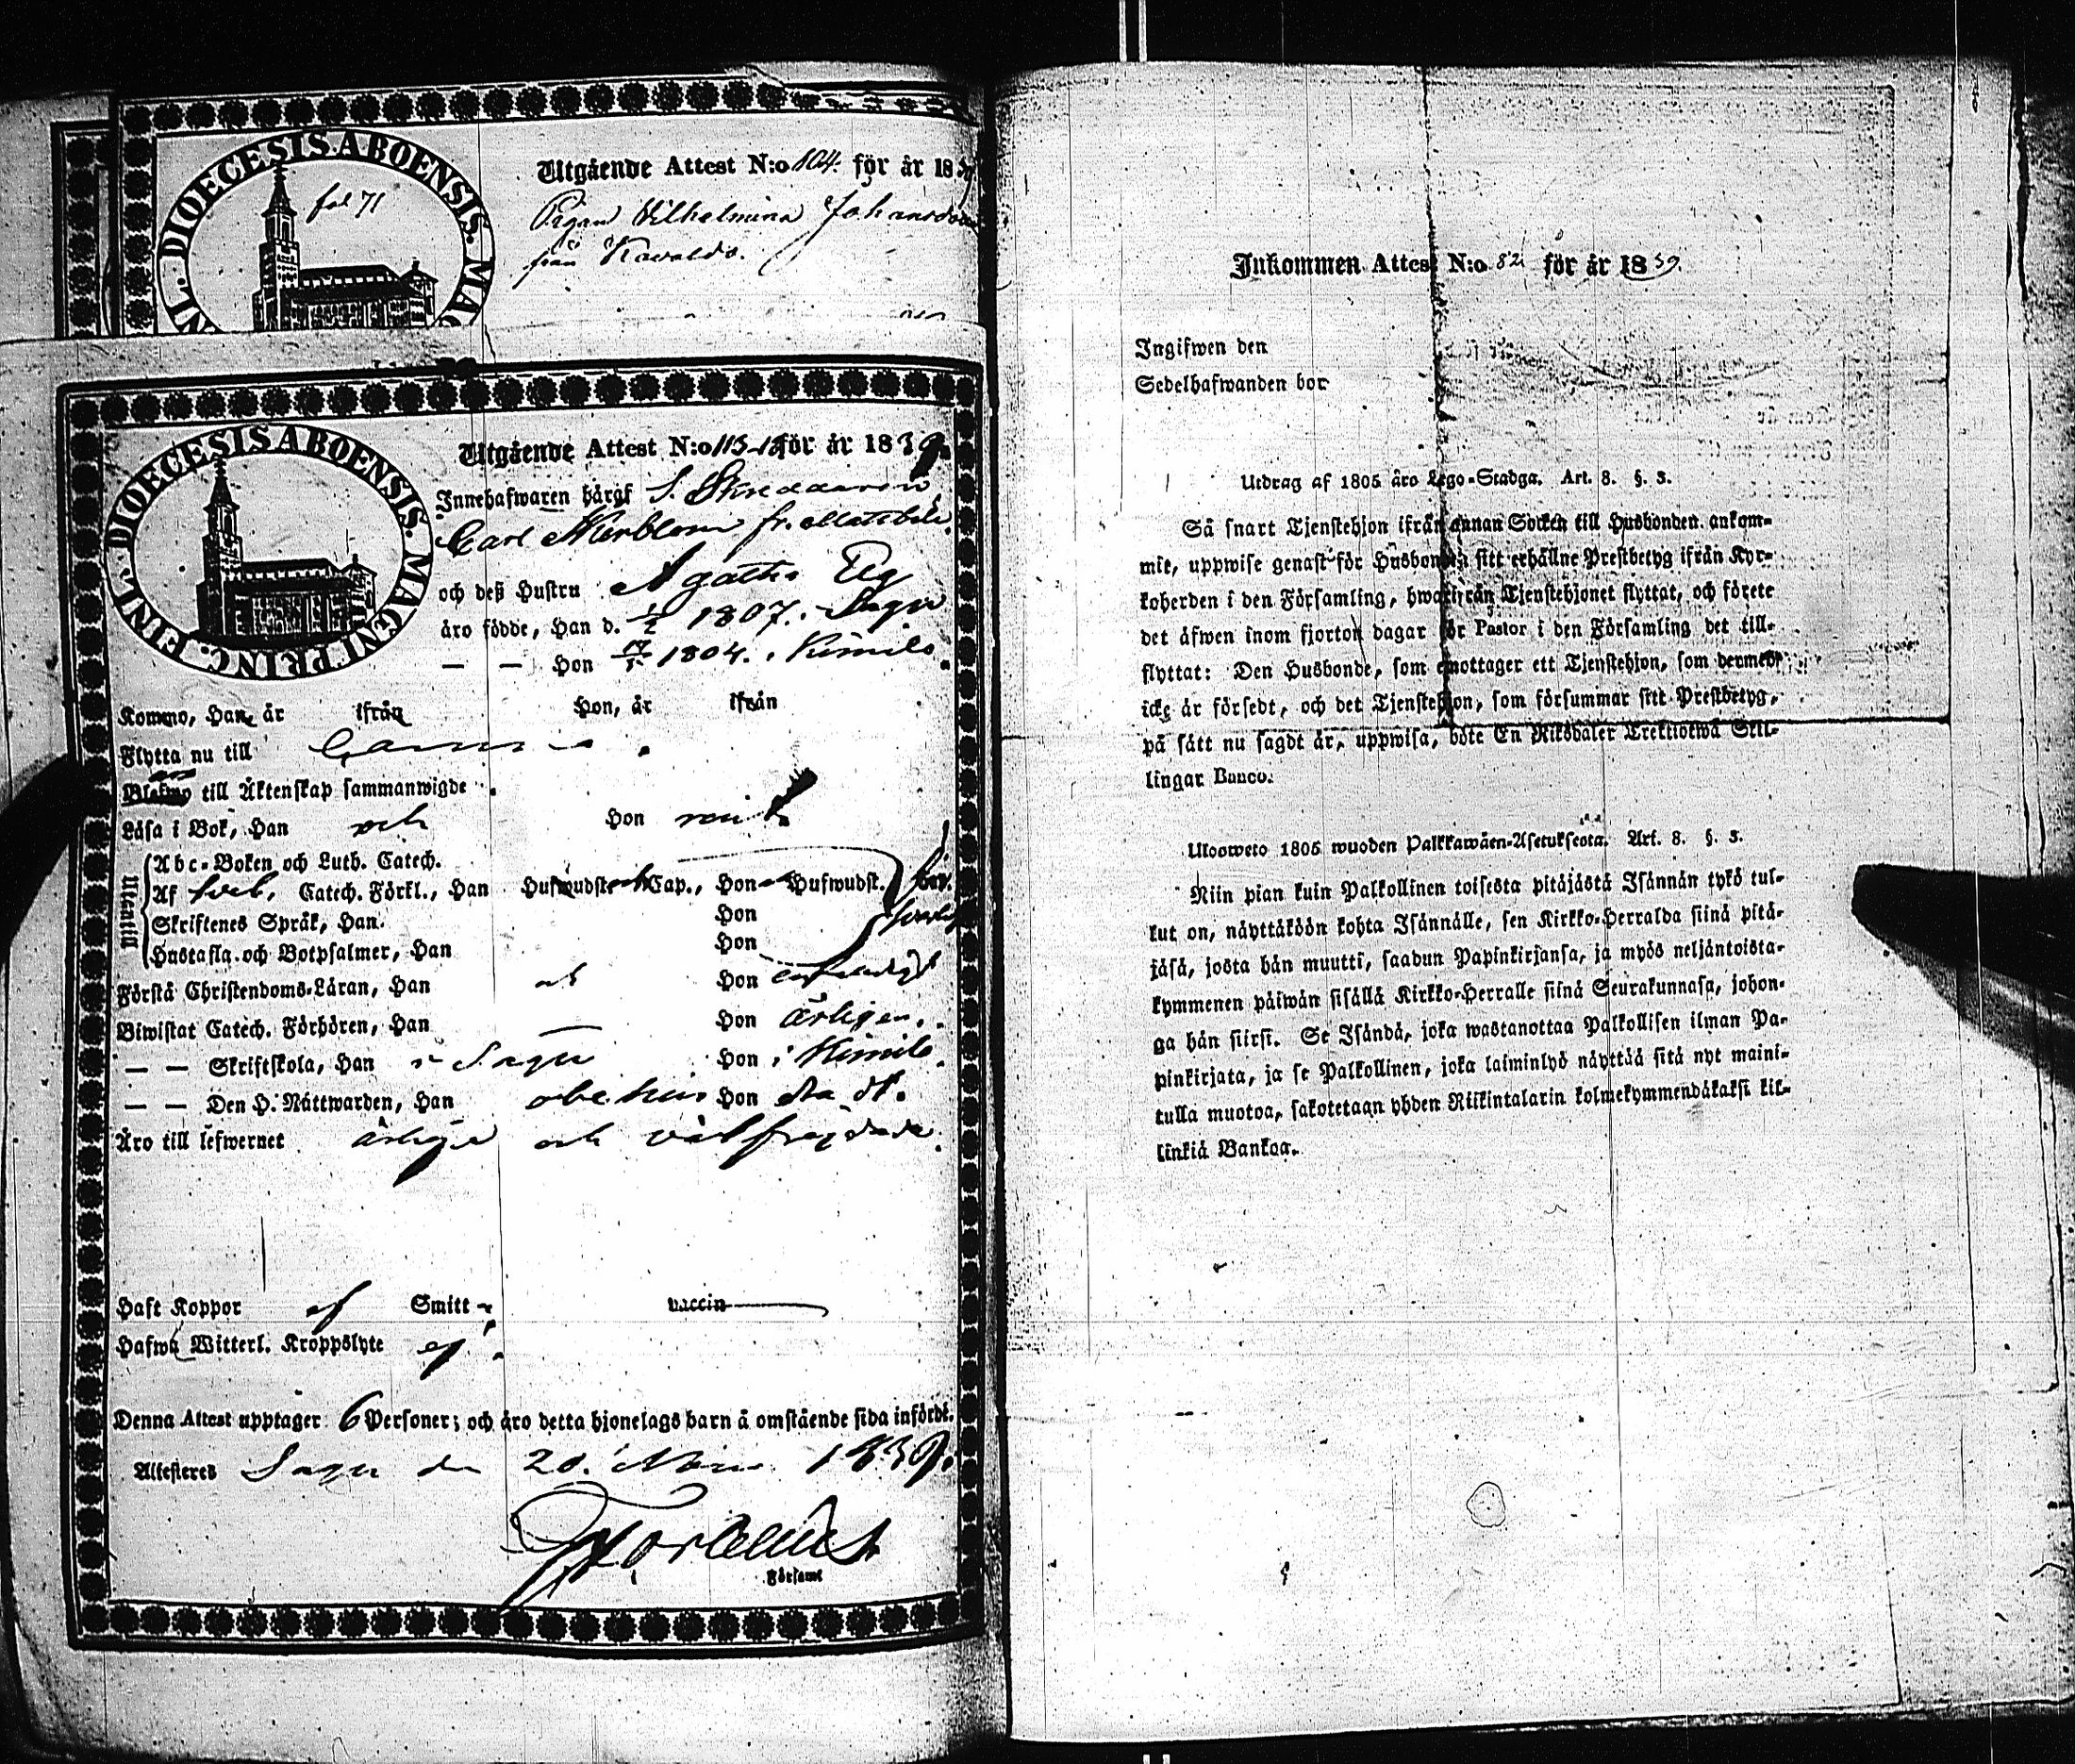 DIOECESIS ABOENSIS. MAG NL.
fol 71
Utgående Attest N:o 104. för år 1839
Pigan Wilhelmina Johansdott
från
DIOECESIS ABOENSIS. MAGNI PRINC. FINL.
Utgående Attest N:o 113-18 för år 1839.
Innehafwaren häraf S. Skreddaren
Carl Åkerblom fr. Mattböle
och deß Hustru Agatha Elg
äro födde, Han d. 1/2 1807. Sagu
— — Hon 1804. i Kimito.
Komne, Han, år ifrån Hon, år ifrån
Flytta nu till
Blefwo till Äktenskap sammanwigde
Läsa i Bok, Han och Hon rent
Utantill
Abc-Boken och Luth. Catech.
Af Sveb. Catech. Förkl., Han Hufwudst. Cap., Hon Hufwudst.
Skriftenes Språk, Han. Hon
Hustafla och Botpsalmer, Han Hon
Förstå Christendoms-Läran, Han och Hon
Biwistat Catech. Förhören, Han — Hon årligen.
— — Skriftskola, Han i Sagu Hon i Kimito.
— — Den H. Nattwarden, Han obehin Hon
Äro till lefwernet ärlige och välfrejdade.
Haft Koppor ej Smitt vaccin
Hafwa Witterl. Kroppslyte ej.
Denna Attest upptager 6 Personer; och äro detta hjonelags barn å omstående sida införde.
Attesteres Sagu den 20. 1839.
Församl
Inkommen Attest N:o 82 för år 1839.
Ingifwen den
Sedelhafwanden bor
Utdrag af 1805 års Lego-Stadga. Art. 8. §. 3.
Så snart Tjenstehjon ifrån annan Socken till Husbonden ankom-
mit, uppwise genast för Husbonden sitt erhållne Prestbetyg ifrån Kyr-
koherden i den Församling, hwarifrån Tjenstehjonet flyttat, och förete
det äfwen inom fjorton dagar för Pastor i den Församling det till-
flyttat: Den Husbonde, som emottager ett Tjenstehjon, som dermed
icke är försedt, och det Tjenstehjon, som försummar sitt Prestbetyg,
på sätt nu sagdt är, uppwisa, böte En Riksdaler Trettiotwå Skil-
lingar Banco.
Uloosweto 1805 wuoden Palkkawäen-Asetuksesta. Art. 8. §. 3.
Niin pian kuin Palkollinen toisesta pitäjästä Isännän tykö tul-
lut on, näyttäköön kohta Isännälle, sen Kirkko-Herralda siinä pitä-
jäsä, josta hän muutti, saadun Papinkirjansa, ja myös neljäntoista-
kymmenen päiwän sisällä Kirkko-Herralle siinä Seurakunnasa, johon-
ga hän siirsi. Se Isändä, joka wastanottaa Palkollisen ilman Pa-
pinkirjata, ja se Palkollinen, joka laiminlyö näyttää sitä nyt maini-
tulla muotoa, sakotetaan yhden Riikintalarin kolmekymmendäkaksi kil-
linkiä Bankoa.